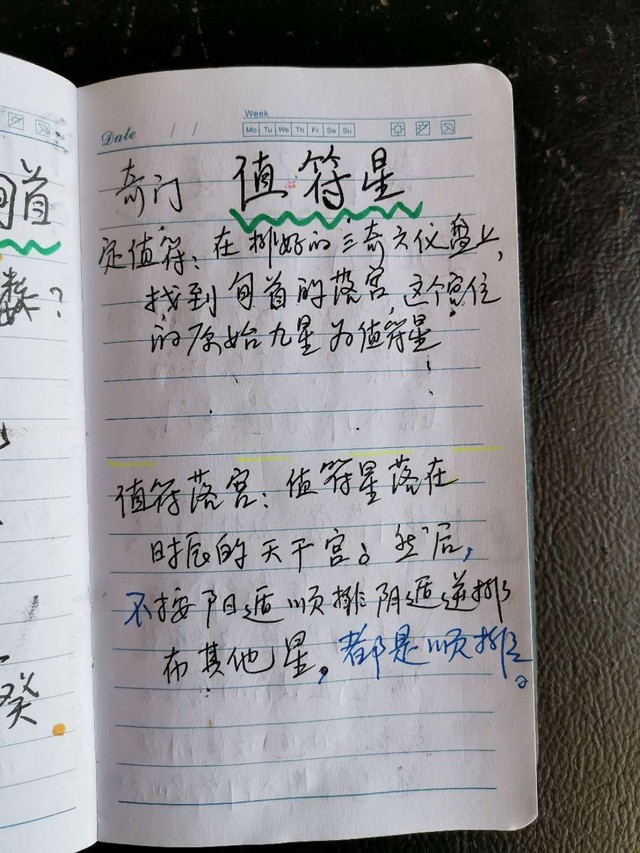 旬首
数?
癸
Date / /
Week
Mo Tu We Th Fr Sa Su
奇门 值符星
定值符:在排好的三奇六仪盘上,
找到旬首的落宫,这个宫位
的原始九星为值符星
值符落宫:值符星落在
时辰的天干宫。然后,
不按阳遁顺排阴遁逆排
布其他星,都是顺排。